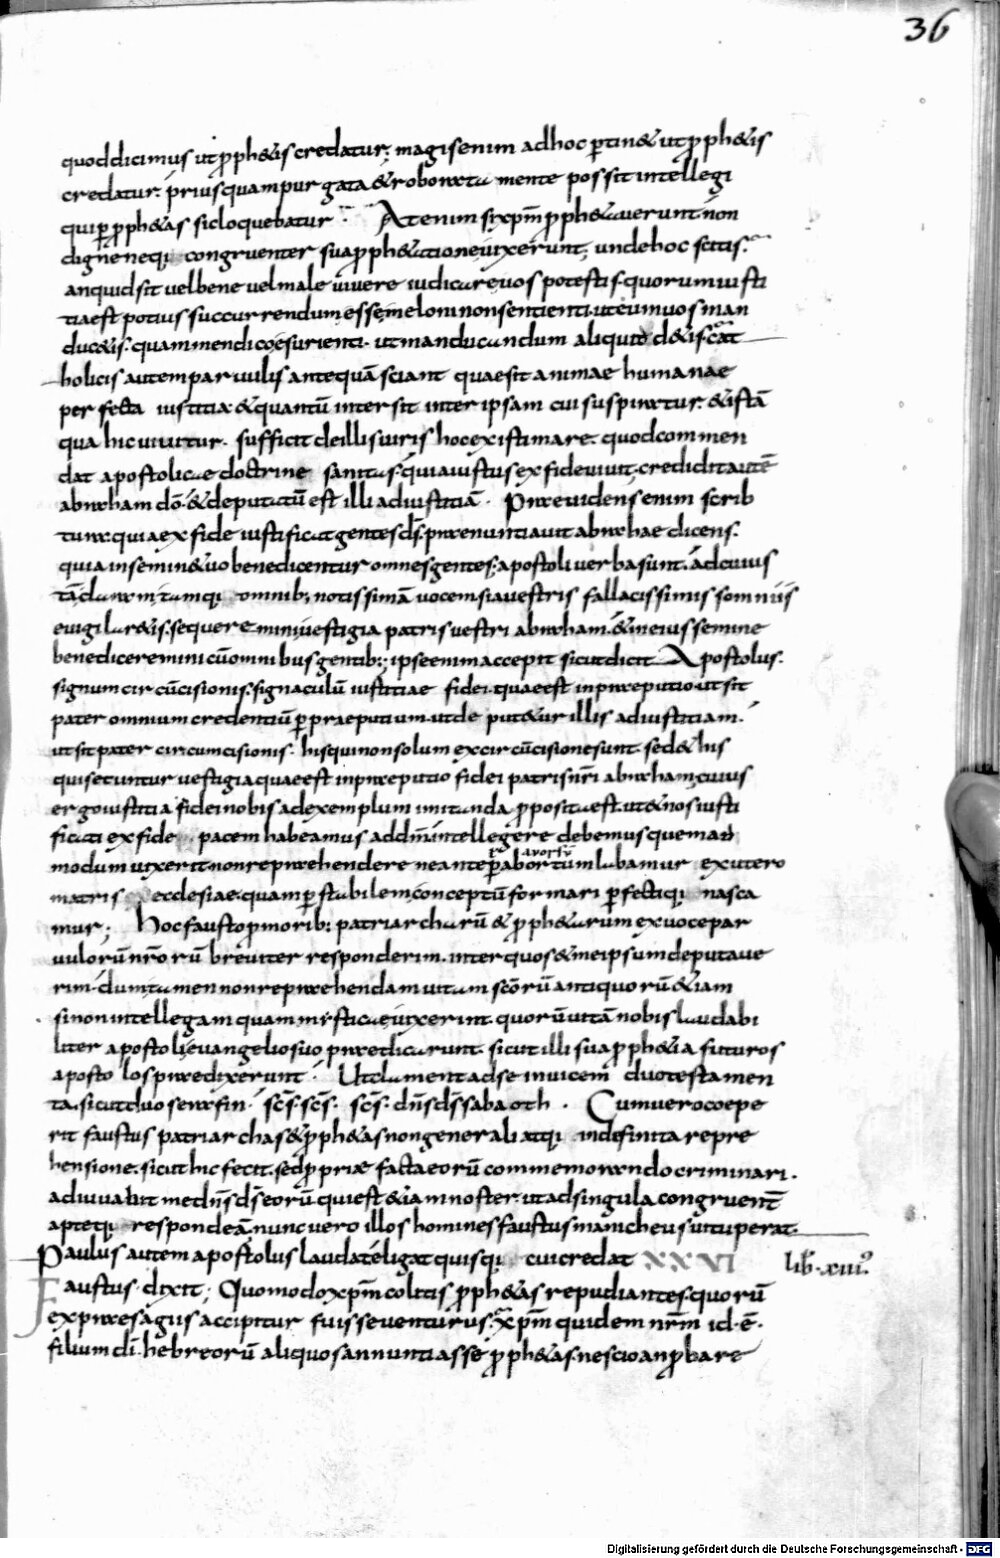 36
quod dicimus ut ꝓph&is credatur; magis enim adhoc ꝑtin& ut ꝓph&is
credatur. prius quam purgata & roborata mente possit intellegi
qui ꝑ ꝓph&as sic loquebatur. At enim si xp̄m ꝓph&auerunt non
digne neq; congruenter sua ꝓph&atione uixerunt; unde hoc scitis.
an quid sit uel bene uel male uiuere iudicare uos potestis. quorum iusti
tia est potius succurrendum esse melom non sentienti. ut eum uos man
duc&is. quam mendico esurienti. ut manducandum aliquid d&is. cat
holicis autem paruulis antequā sciant quae sit animae humanae
perfecta iustitia & quantū inter sit inter ipsam cui suspiratur. & istā
qua hic uiuitur. sufficit de illis uiris hoc existimare. quod commen
dat apostolicae doctrine sanitas. quia iustus ex fide uiuit. credidit autē
abraham dō. & deputatū est illi ad iustitiā. Praeuidens enim scrib
tura quia ex fide iustificat gentes ds̄. praenuntiauit abrahae dicens.
quia in semin& uo benedicentur omnes gentes. apostoli uerba sunt. ad cuius
tā clarām tamq; omnib; notissimā uocem si a uestris fallacissimis somniis
euigilar&is. sequeremini uestigia patris uestri abraham. & in eius semine
benediceremini cū omnibus gentib;; ipse enim accepit sicut dicit Apostolus.
signum circūcisionis. signaculū iustitiae fidei. quae est in praeputio. ut sit
pater omnium credentiū ꝑ praeputium. ut de put&ur illis ad iustitiam.
ut sit pater circumcisionis. his qui non solum ex circūcisione sunt. sed & his
qui secuntur uestigia quae est in praeputio fidei patris nr̄i abraham. cuius
ergo iustitia fidei nobis ad exemplum imitanda ꝓposita est. ut & nos iusti
ficati ex fide pacem habeamus ad dm̄. intellegere debemus quemad
auortū
modum uixerit non reprehendere ne ante ꝑ abortum labamur ex utero
matris ecclesiae. quam ꝑ stabilem conceptū formari ꝑfectiq; nasca
mur; Hoc fausto ꝓ morib; patriarcharū & ꝓph&arum ex uoce par
uulorū nr̄orū breuiter responderim. inter quos & me ipsum deputaue
rim. dum tamen non reprehendam uitam scōrū antiquorū & iam
si non intellegam quam mystice uixerint. quorū uitā nobis laudabi
liter apostoli euangelio suo praedicarunt. sicut illi sua ꝓph&ia futuros
apostolos praedixerunt. Ut clament ad se inuicem duo testamen
ta. sicut duo serafin. scs̄. scs̄. scs̄. dns̄ ds̄ sabaoth. Cum uero coepe
rit faustus patriarchas & ꝓph&as non generali atq; indefinita repre
hensione. sicut hic fecit. sed ꝓpria facta eorū commemorando criminari.
adiuuabit me dns̄ ds̄ eorū qui est & iam noster. ut ad singula congruent̄
apteq; respondeā. nunc uero illos homines faustus manicheus uituperat.
Paulus autem apostolus laudat. eligat quisq; cui credat XXVI
lib̄. xiii.
Faustus dixit; Quomodo xp̄m colitis ꝓph&as repudiantes. quorū
ex praesagiis accipitur fuisse uenturus. xp̄m quidem nr̄m id. ē.
filium dī. hebreorū aliquos annuntiasse ꝓph&as. nescio an ꝓbare